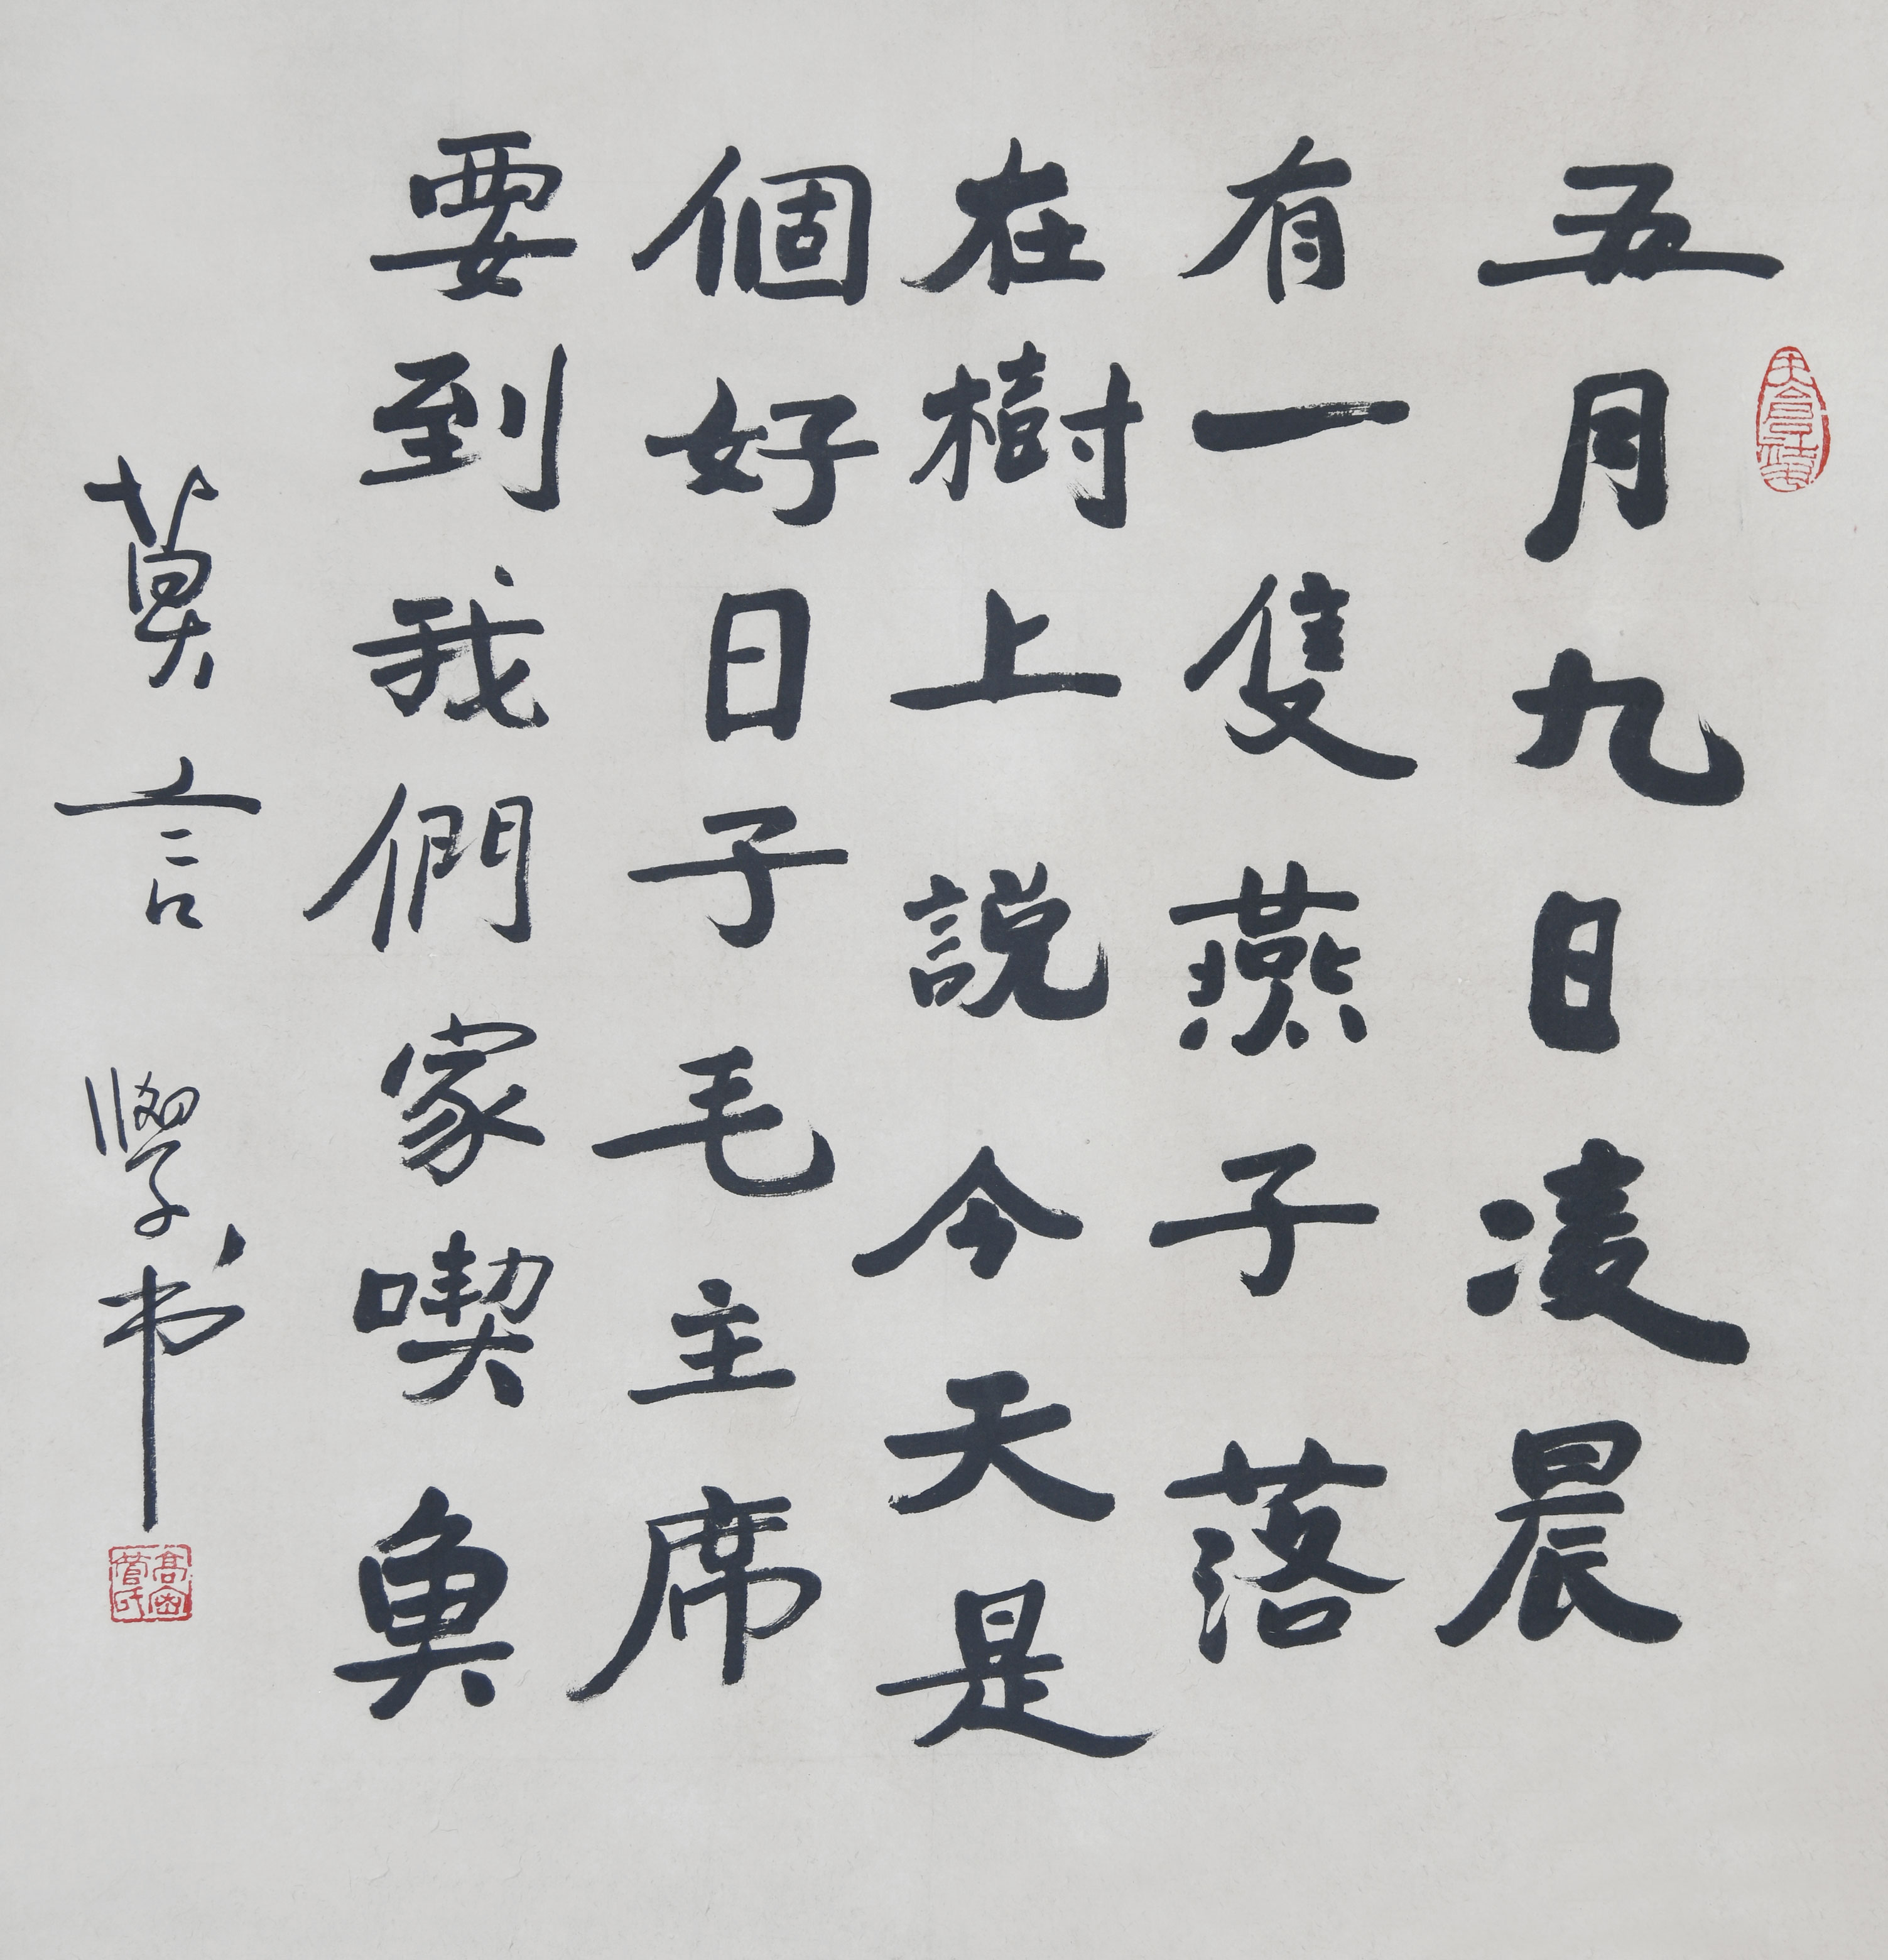 五月九日凌晨
有一隻燕子落
在樹上説今天是
個好日子毛主席
要到我們家喫魚
莫言 學书
高密管氏